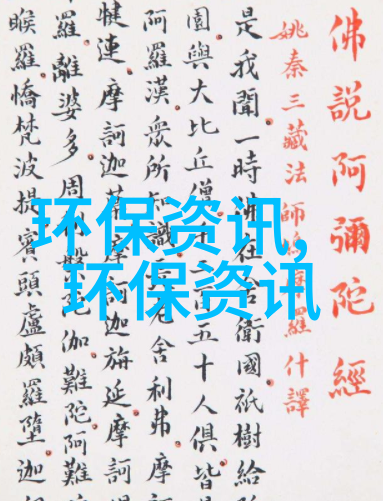 佛說阿彌陀經
姚秦三藏法師鳩摩羅什譯
是我聞一時佛在舍衛國祇樹給
園與大比丘僧千二百五十人俱皆
阿羅漢眾所知識長老舍利弗摩
犍連摩訶迦葉摩訶迦旃延摩訶
羅離婆多周利槃陀伽難陀阿難
睺羅憍梵波提賓頭盧頗羅墮迦
环保资讯,
环保资讯